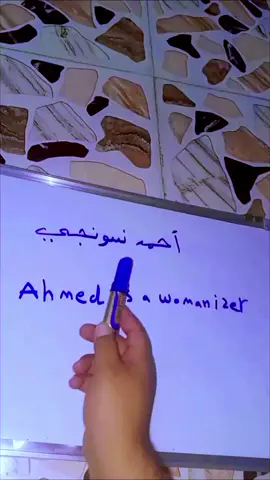 أحمد نسونجي
Ahmed is a womanizer